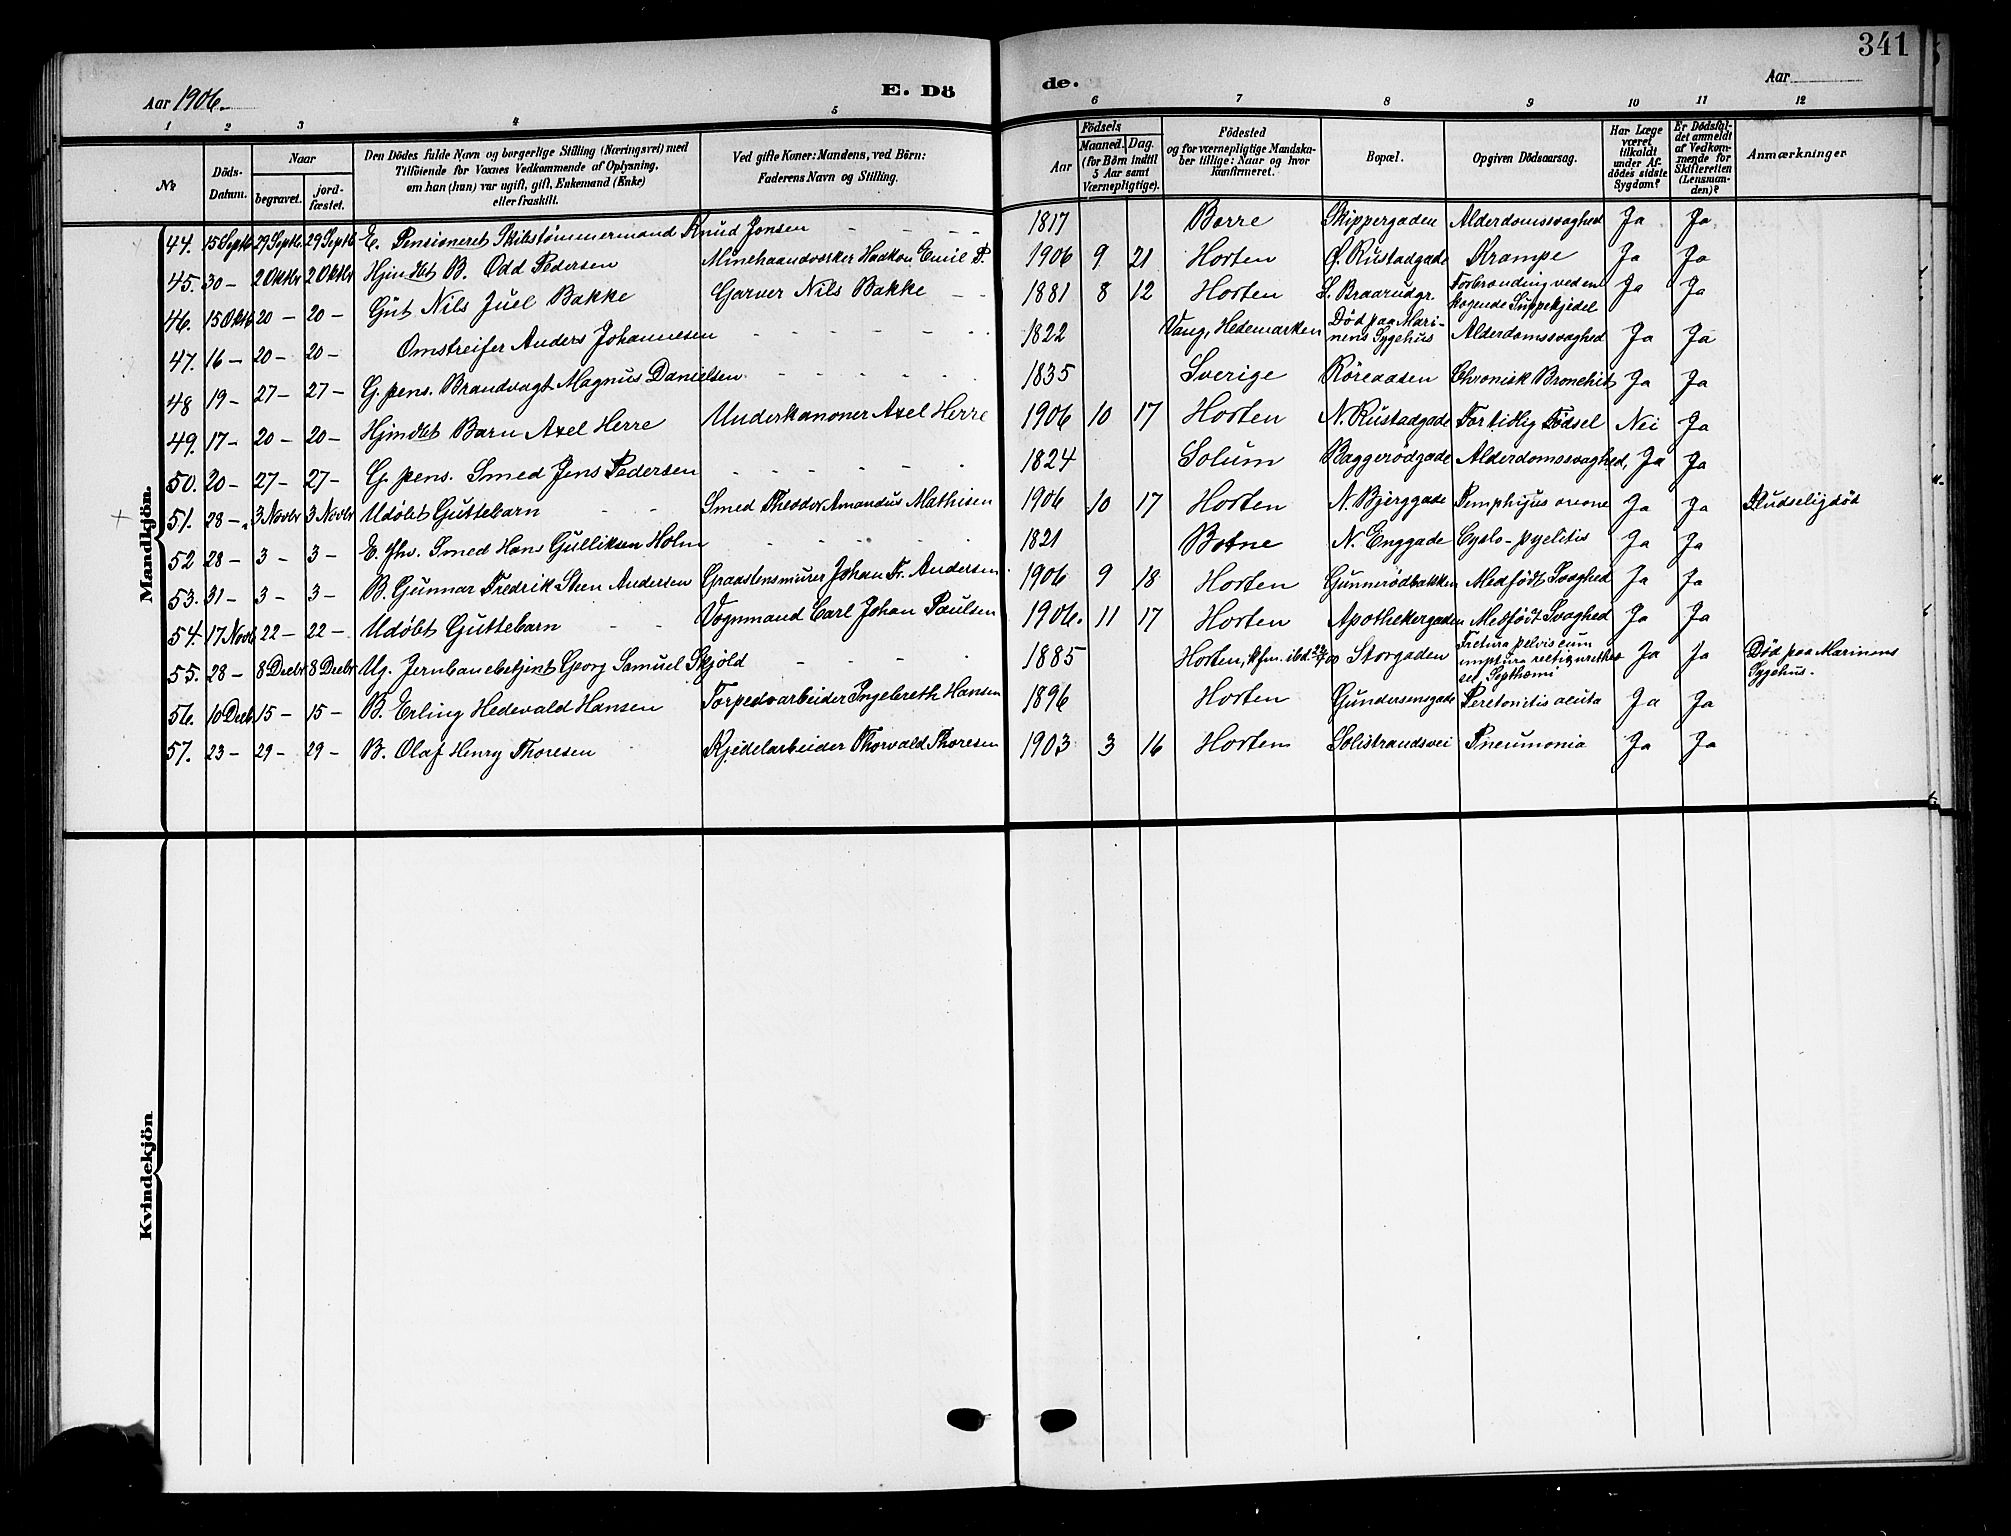 341
Aar 1906.
E. Dö
de.
Aar
1 2 3 4 5 6 7 8 9 10 11 12
№
Döds-
Datum.
Naar
begravet.
jord-
fæstet.
Den Dödes fulde Navn og borgerlige Stilling (Næringsvei) med
Tilföiende for Voxnes Vedkommende af Oplysning,
om han (hun) var ugift, gift, Enkemand (Enke)
eller fraskilt.
Ved gifte Koner: Mandens, ved Börn:
Faderens Navn og Stilling.
Födsels
Aar
Maaned. Dag.
(for Börn indtil
5 Aar samt
Værnepligtige).
Födested
og for værnepligtige Mandska-
ber tillige: Naar og hvor
konfirmeret.
Bopæl.
Opgiven Dödsaarsag.
Har Læge
været
tilkaldt
under Af-
dödes sidste
Sygdom?
Er Dödsfal-
det anmeldt
af Vedkom-
mende for
Skifteretten
(Lensman-
den)?
Anmærkninger
Mandkjön.
44. 15 Septb 29 Septb 29 Septb E. Pensioneret Skibstømmermand Knud Jonsen 1817 Borre Skippergaden Alderdomssvaghed Ja Ja
45. 30 – 2 Oktbr 2 Oktbr Hjmdbt B. Odd Pedersen Minehaandverker Haakon Emil P. 1906 9 21 Horten Ø. Rustadgade Krampe Ja Ja
46. 15 Oktb 20 – 20 – Gut Nils Juel Bakke Garver Nils Bakke 1881 8 12 Horten S. Braarudgr. Forbrænding ved en
kogende Suppekjedel Ja Ja
47. 16 – 20 – 20 – Omstreifer Anders Johannesen 1822 Vang, Hedemarken Død paa Mari-
nens Sygehus Alderdomssvaghed Ja Ja
48 19 – 27 – 27 – G. pens. Brandvagt Magnus Danielsen 1835 Sverige Røreaasen Chronisk Bronchit Ja Ja
49. 17 – 20 – 20 – Hjmdbt Barn Axel Herre Underkanoner Axel Herre 1906 10 17 Horten N. Rustadgade For tidlig Fødsel Nei Ja
50. 20 – 27 – 27 – G. pens. Smed Jens Pedersen 1824 Solum Baggerødgade Alderdomssvaghed, Ja Ja
51. 28 – 3 Novbr 3 Novbr Udøbt Guttebarn Smed Theodor Amandus Mathisen 1906 10 17 Horten N. Bjerggade Pemphigus Ja Ja
52 28 – 3 – 3 – E. fhv. Smed Hans Gulliksen Holm 1821 Botne N. Enggade Cysto-pyelitis Ja Ja
53. 31 – 3 – 3 – B. Gunnar Fredrik Steen Andersen Graastensmurer Johan Fr. Andersen 1906 9 18 Horten Gunnerødbakken Medfødt Svaghed Ja Ja
54. 17 Novb 22 – 22 – Udøbt Guttebarn Vognmand Carl Johan Paulsen 1906. 11 17 Horten Apothekergaden Medfødt Svaghed Ja Ja
55. 28 – 8 Decbr 8 Decbr Ug. Jernbanebetjent Georg Samuel Skjöld 1885 Horten, kfm. ibd. Storgaden Ja Ja Død paa Marinens
Sygehus.
56. 10 Decb. 15 – 15 – B. Erling Hedevald Hansen Torpedoarbeider Ingebreth Hansen 1896 Horten Gundersensgade Peretonitis acuta Ja Ja
57. 23 – 29 – 29 – B. Olaf Henry Thoresen Kjedelarbeider Thorvald Thoresen 1903 3 16 Horten Solistrandsvei Pneumonia Ja Ja
Kvindekjön